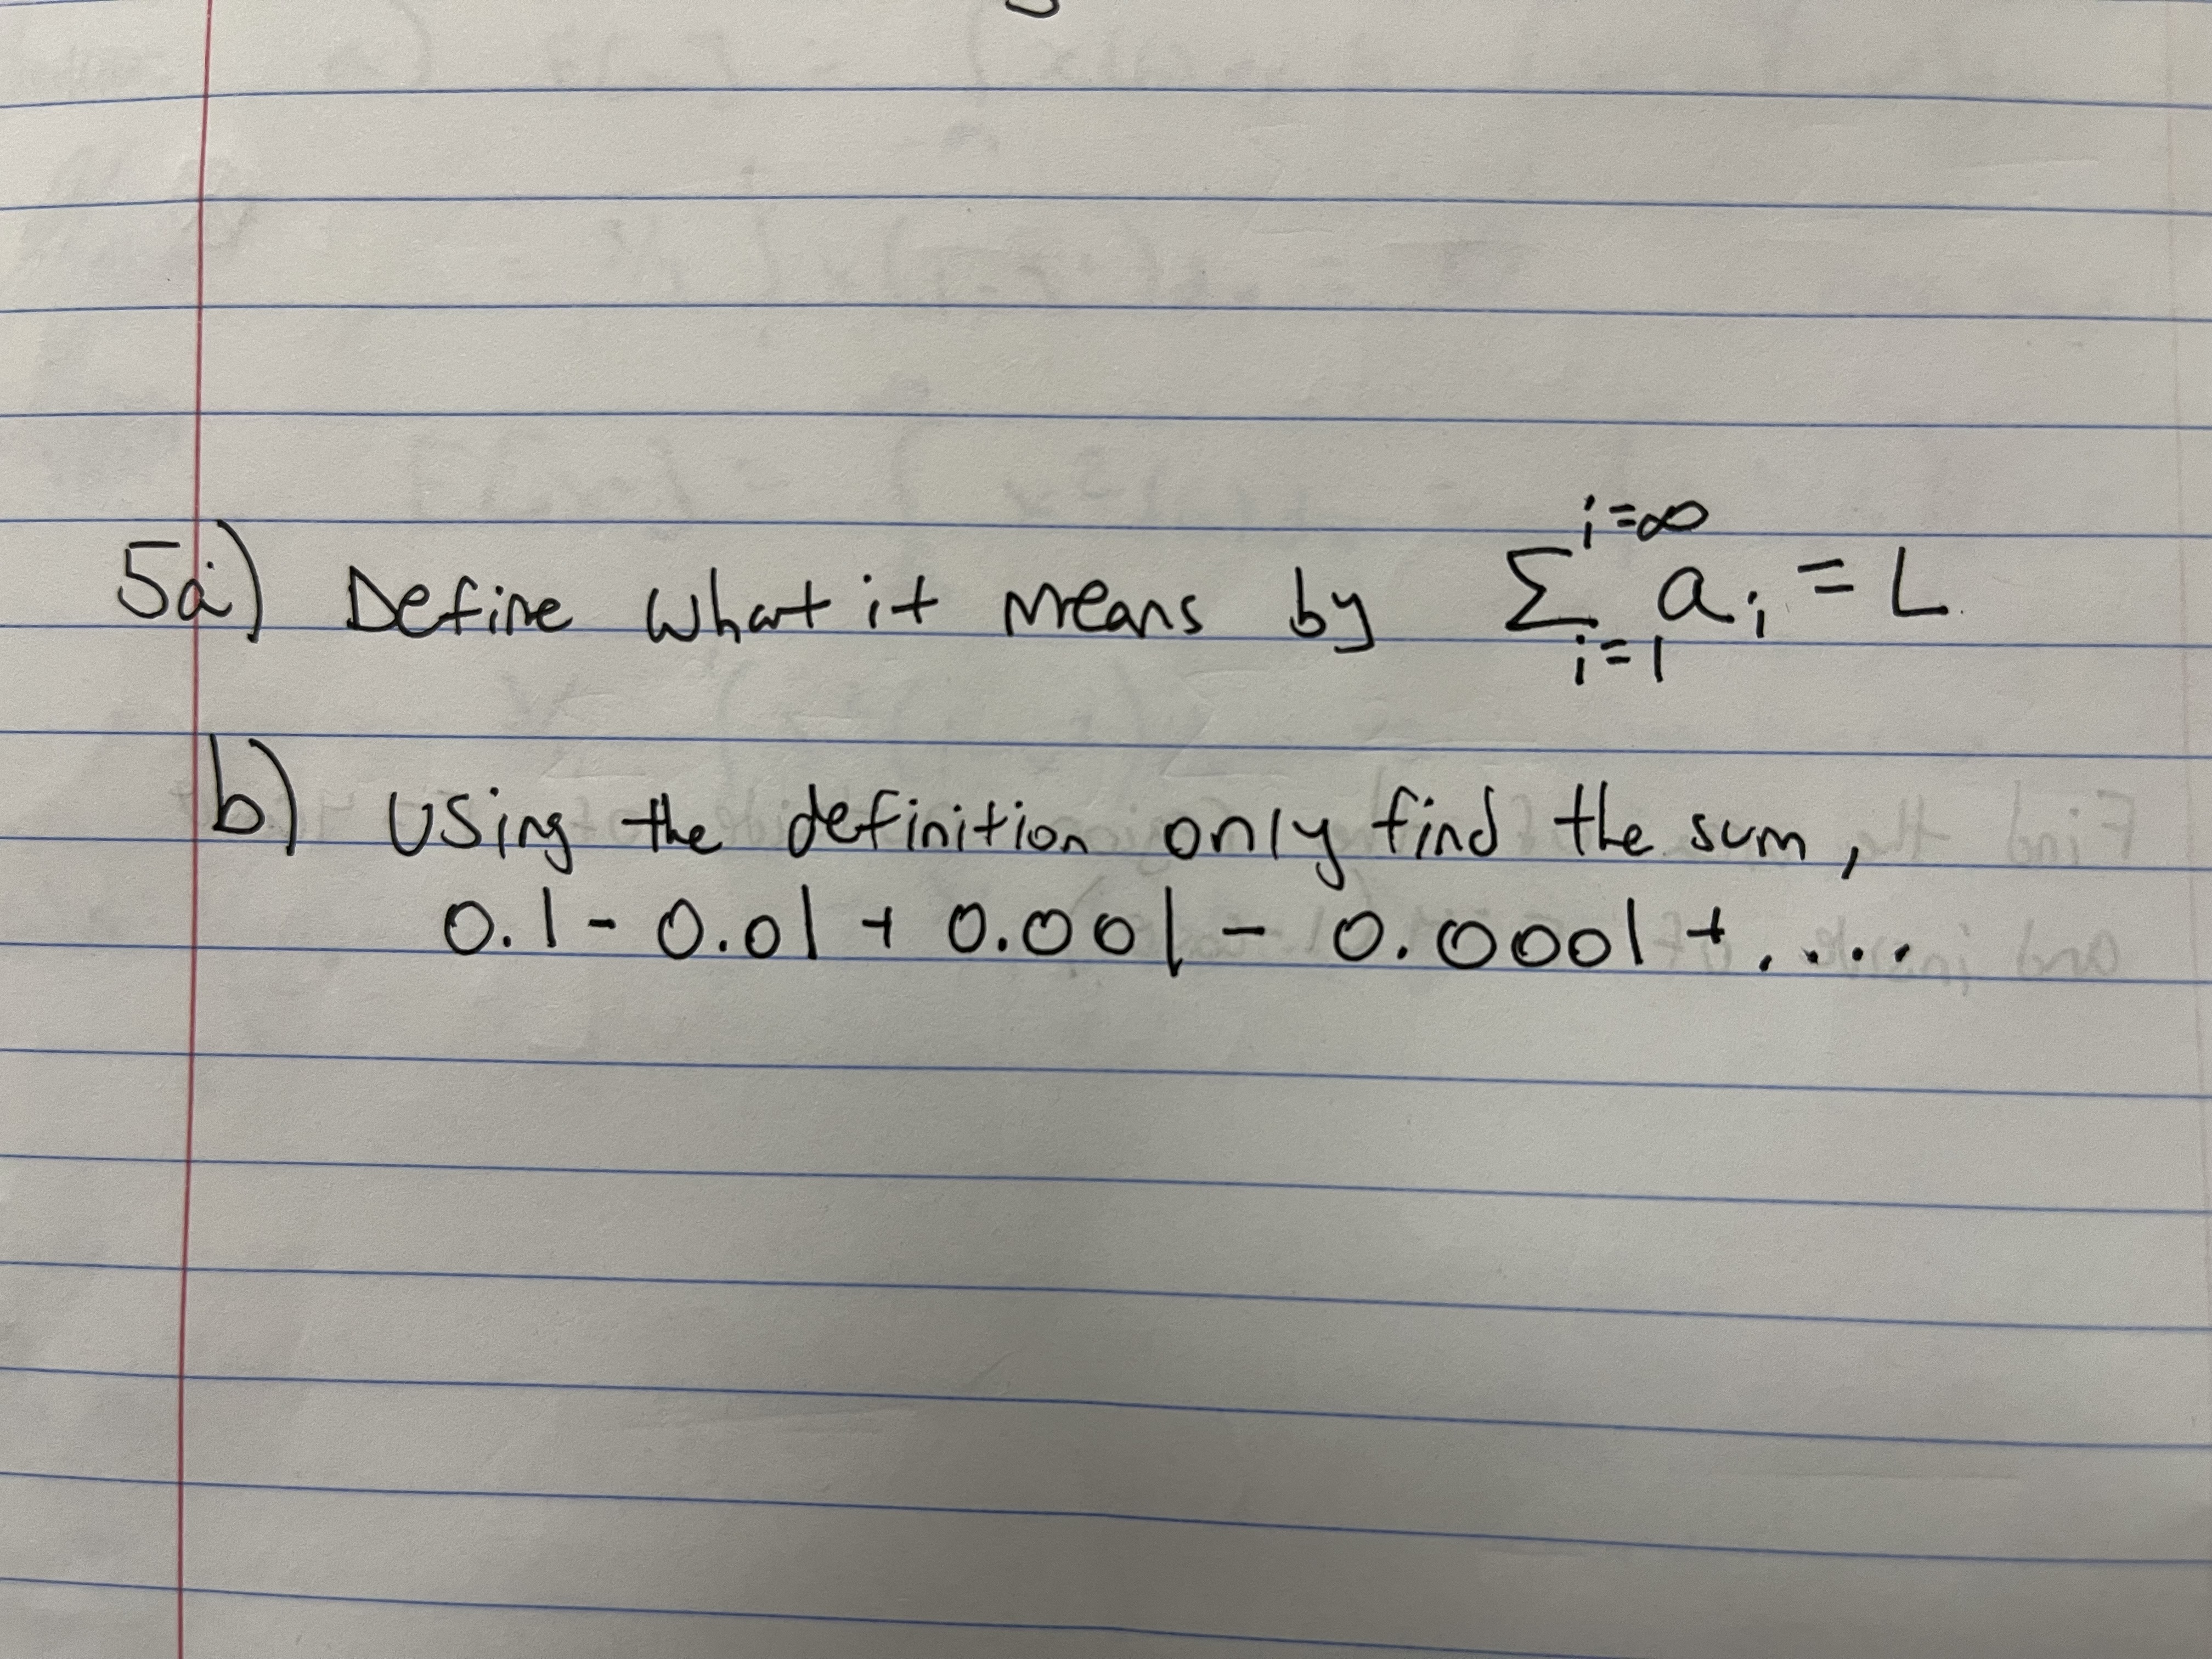 5a) Define what it means by $\sum_{i=1}^{i=\infty} a_i = L$
b) Using the definition only find the sum,
0.1 - 0.01 + 0.001 - 0.0001 + ....